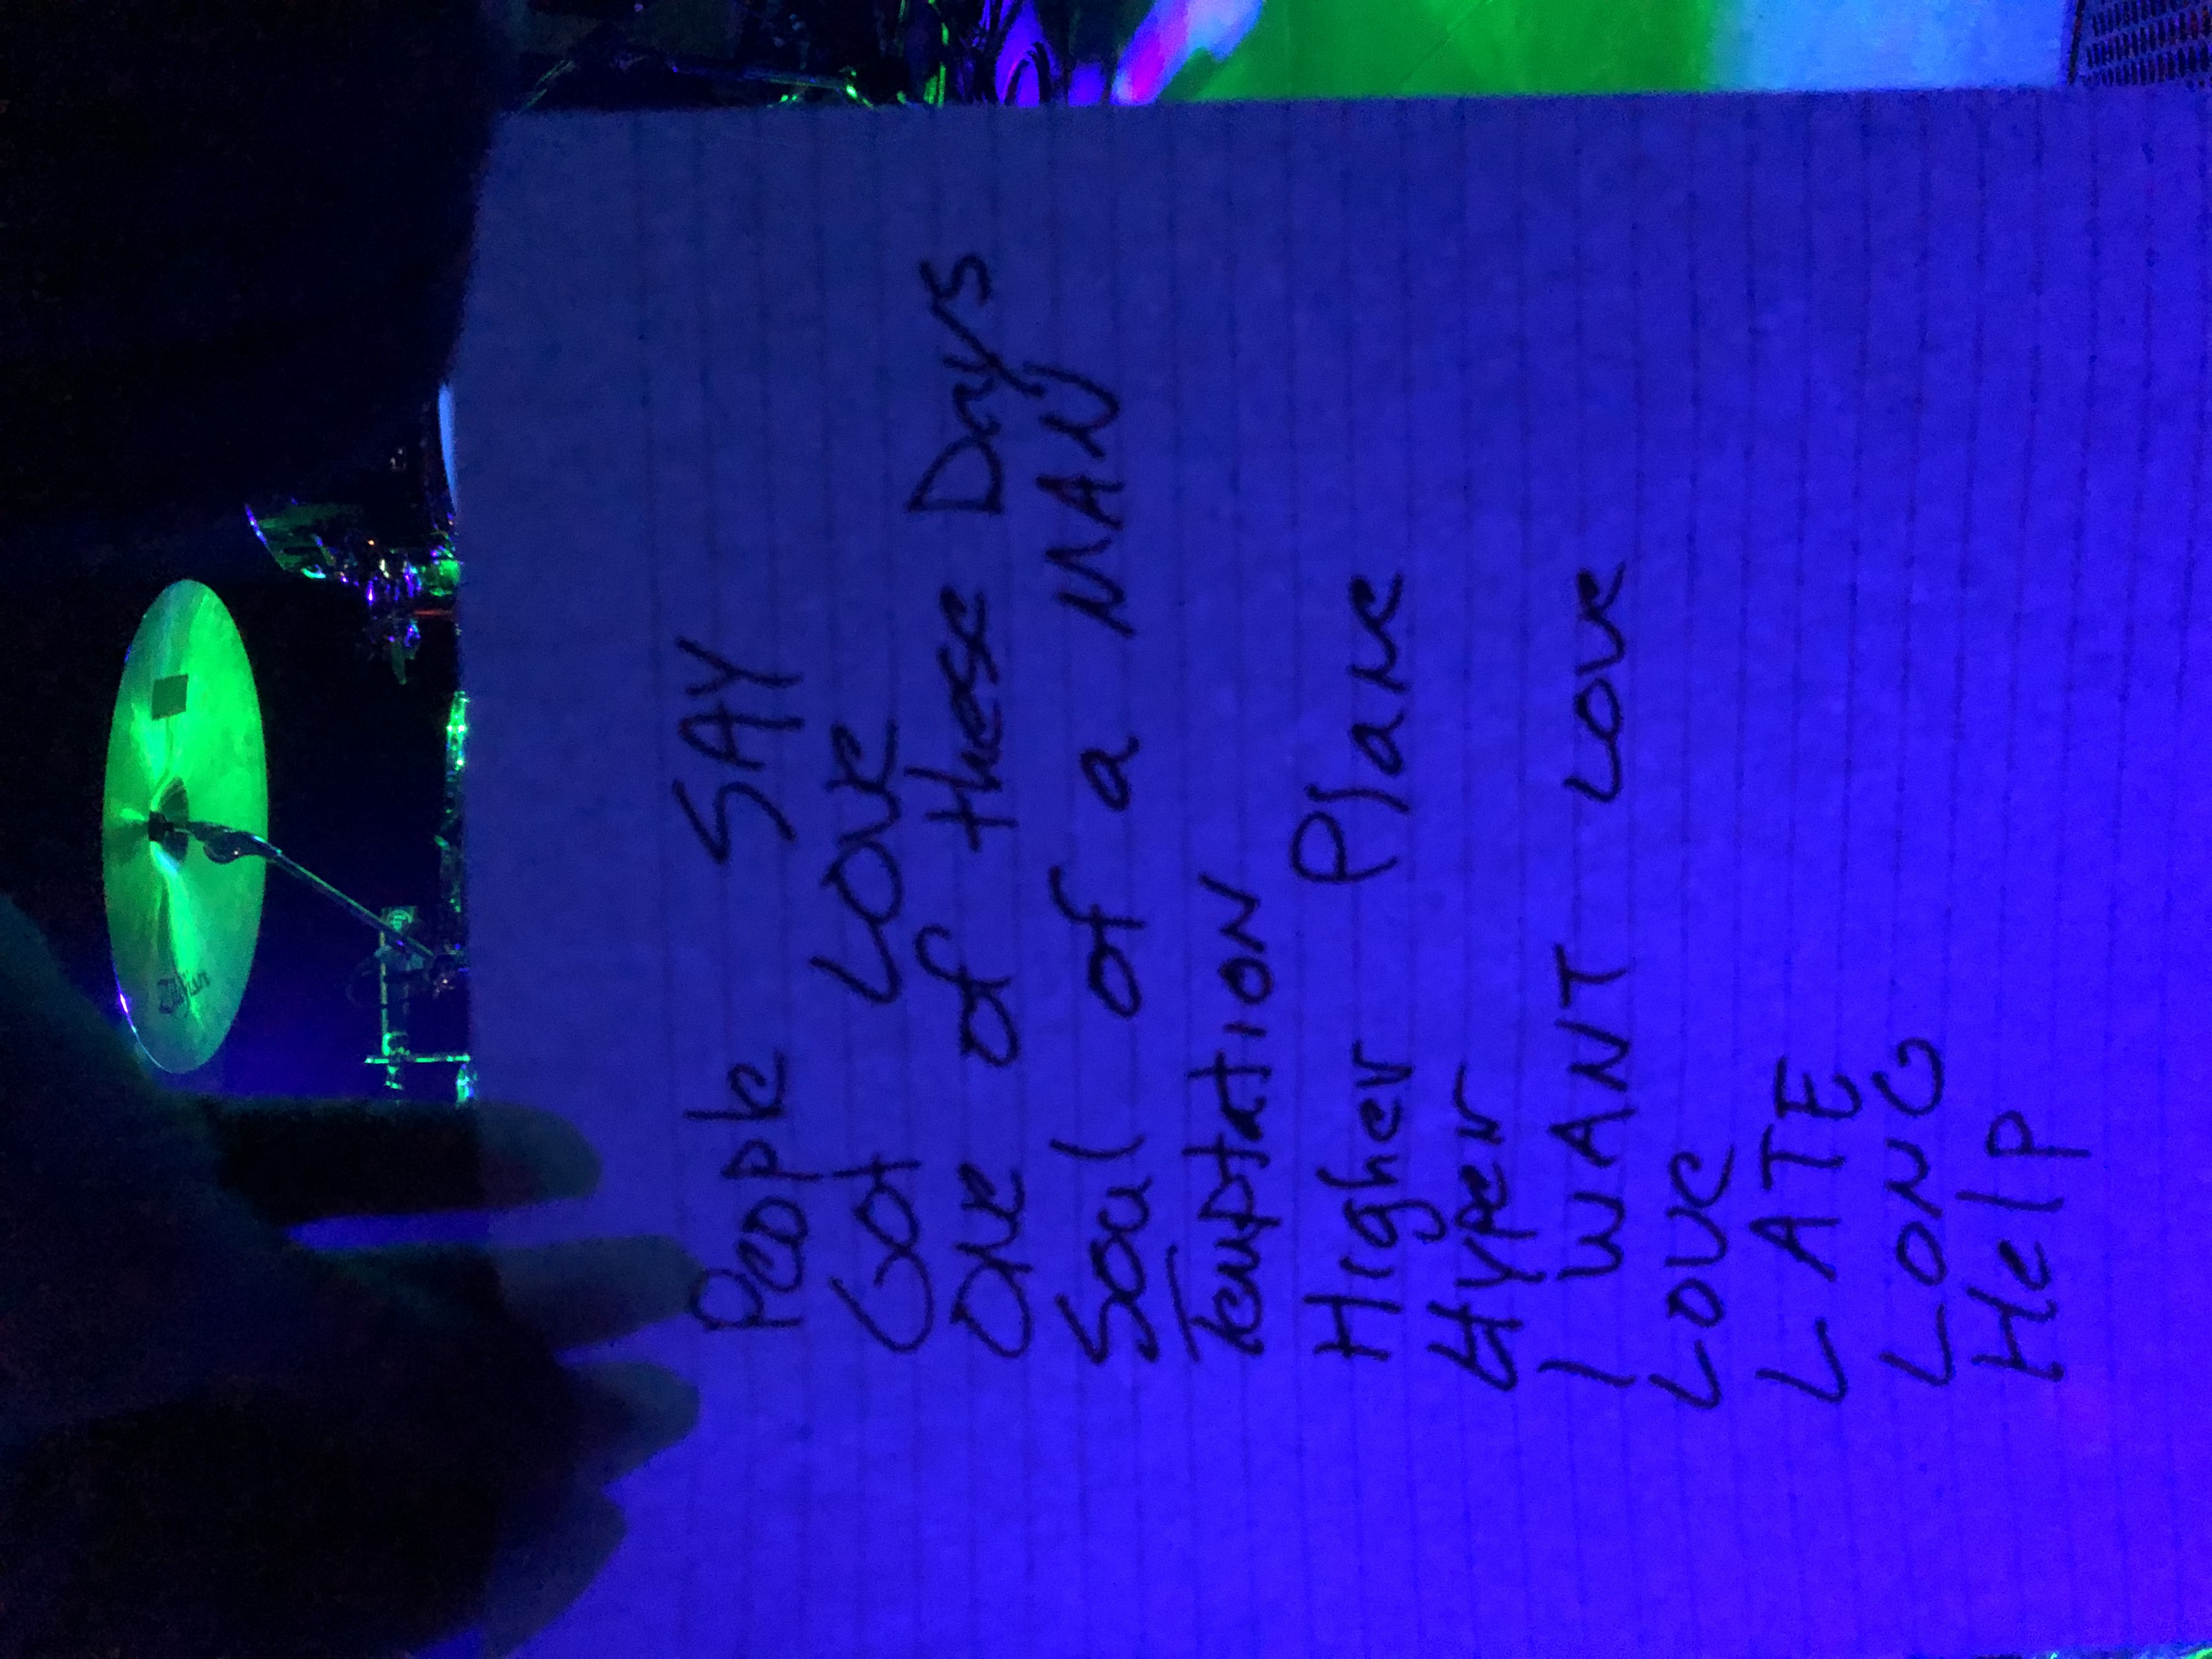 People SAY
Got LOVE
ONE of these Days
Soul of a MAN
TemptatION
Higher Plane
Hyper
I WANT LOVE
LOVE
LATE
LONG
Help
Zildjian